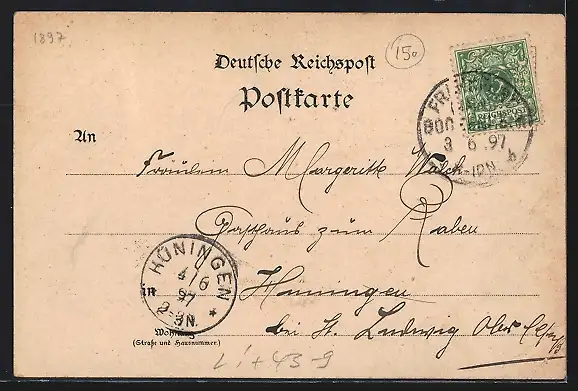 1897
150
Deutsche Reichspost
Postkarte
REICHSPOST
3 6 .97
9-10N. b
An
Fräulein Margerith Walch
Gasthaus zum Raben
HÜNINGEN
4/6
97
2-3N. *
in
Hüningen
bei St. Ludwig Ober Elsaß
Wohnung
(Straße und Hausnummer)
Li+43-9